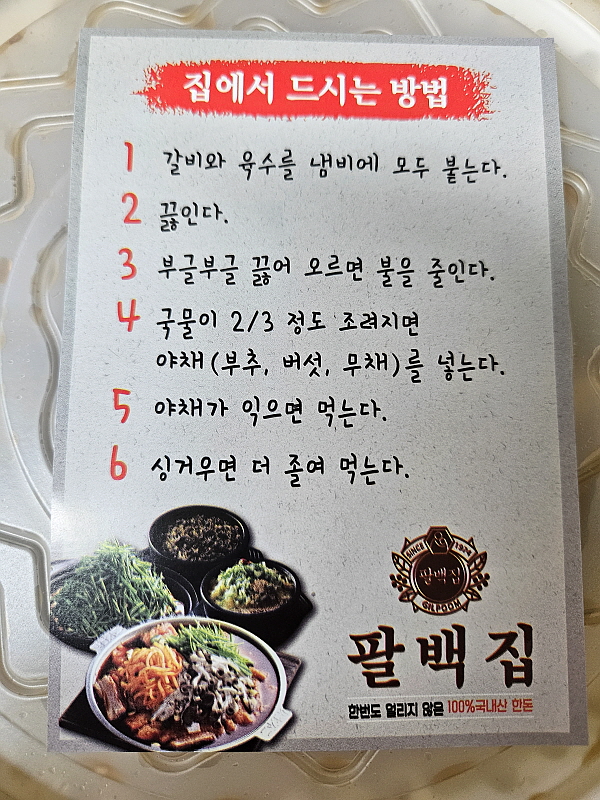 집에서 드시는 방법
1 갈비와 육수를 냄비에 모두 붙는다.
2 끓인다.
3 부글부글 끓어 오르면 불을 줄인다.
4 국물이 2/3 정도 조려지면
야채(부추, 버섯, 무채)를 넣는다.
5 야채가 익으면 먹는다.
6 싱거우면 더 졸여 먹는다.
SINCE 1974
팔백집
GILFOOM
팔백집
한번도 얼리지 않은 100%국내산 한돈